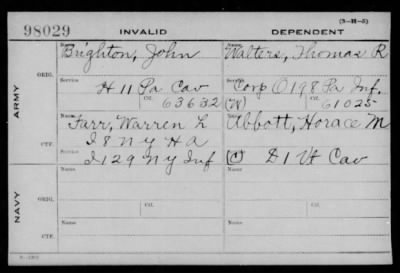 (3-H-5)
98029 INVALID DEPENDENT
ARMY
ORIG.
Name
Brighton, John
Service
H 11 Pa Cav
Ctf.
63632
Name
Walters, Thomas R
Service
Corp O 198 Pa Inf.
(W)
Ctf.
61025
CTF.
Name
Farr, Warren L
I 8 N Y H A
Service
I 129 N Y Inf
Name
Abbott, Horace M
(C) D 1 Vt Cav
NAVY
ORIG.
Name
Service
Ctf.
Name
Service
Ctf.
CTF.
Name
Service
Name
Service